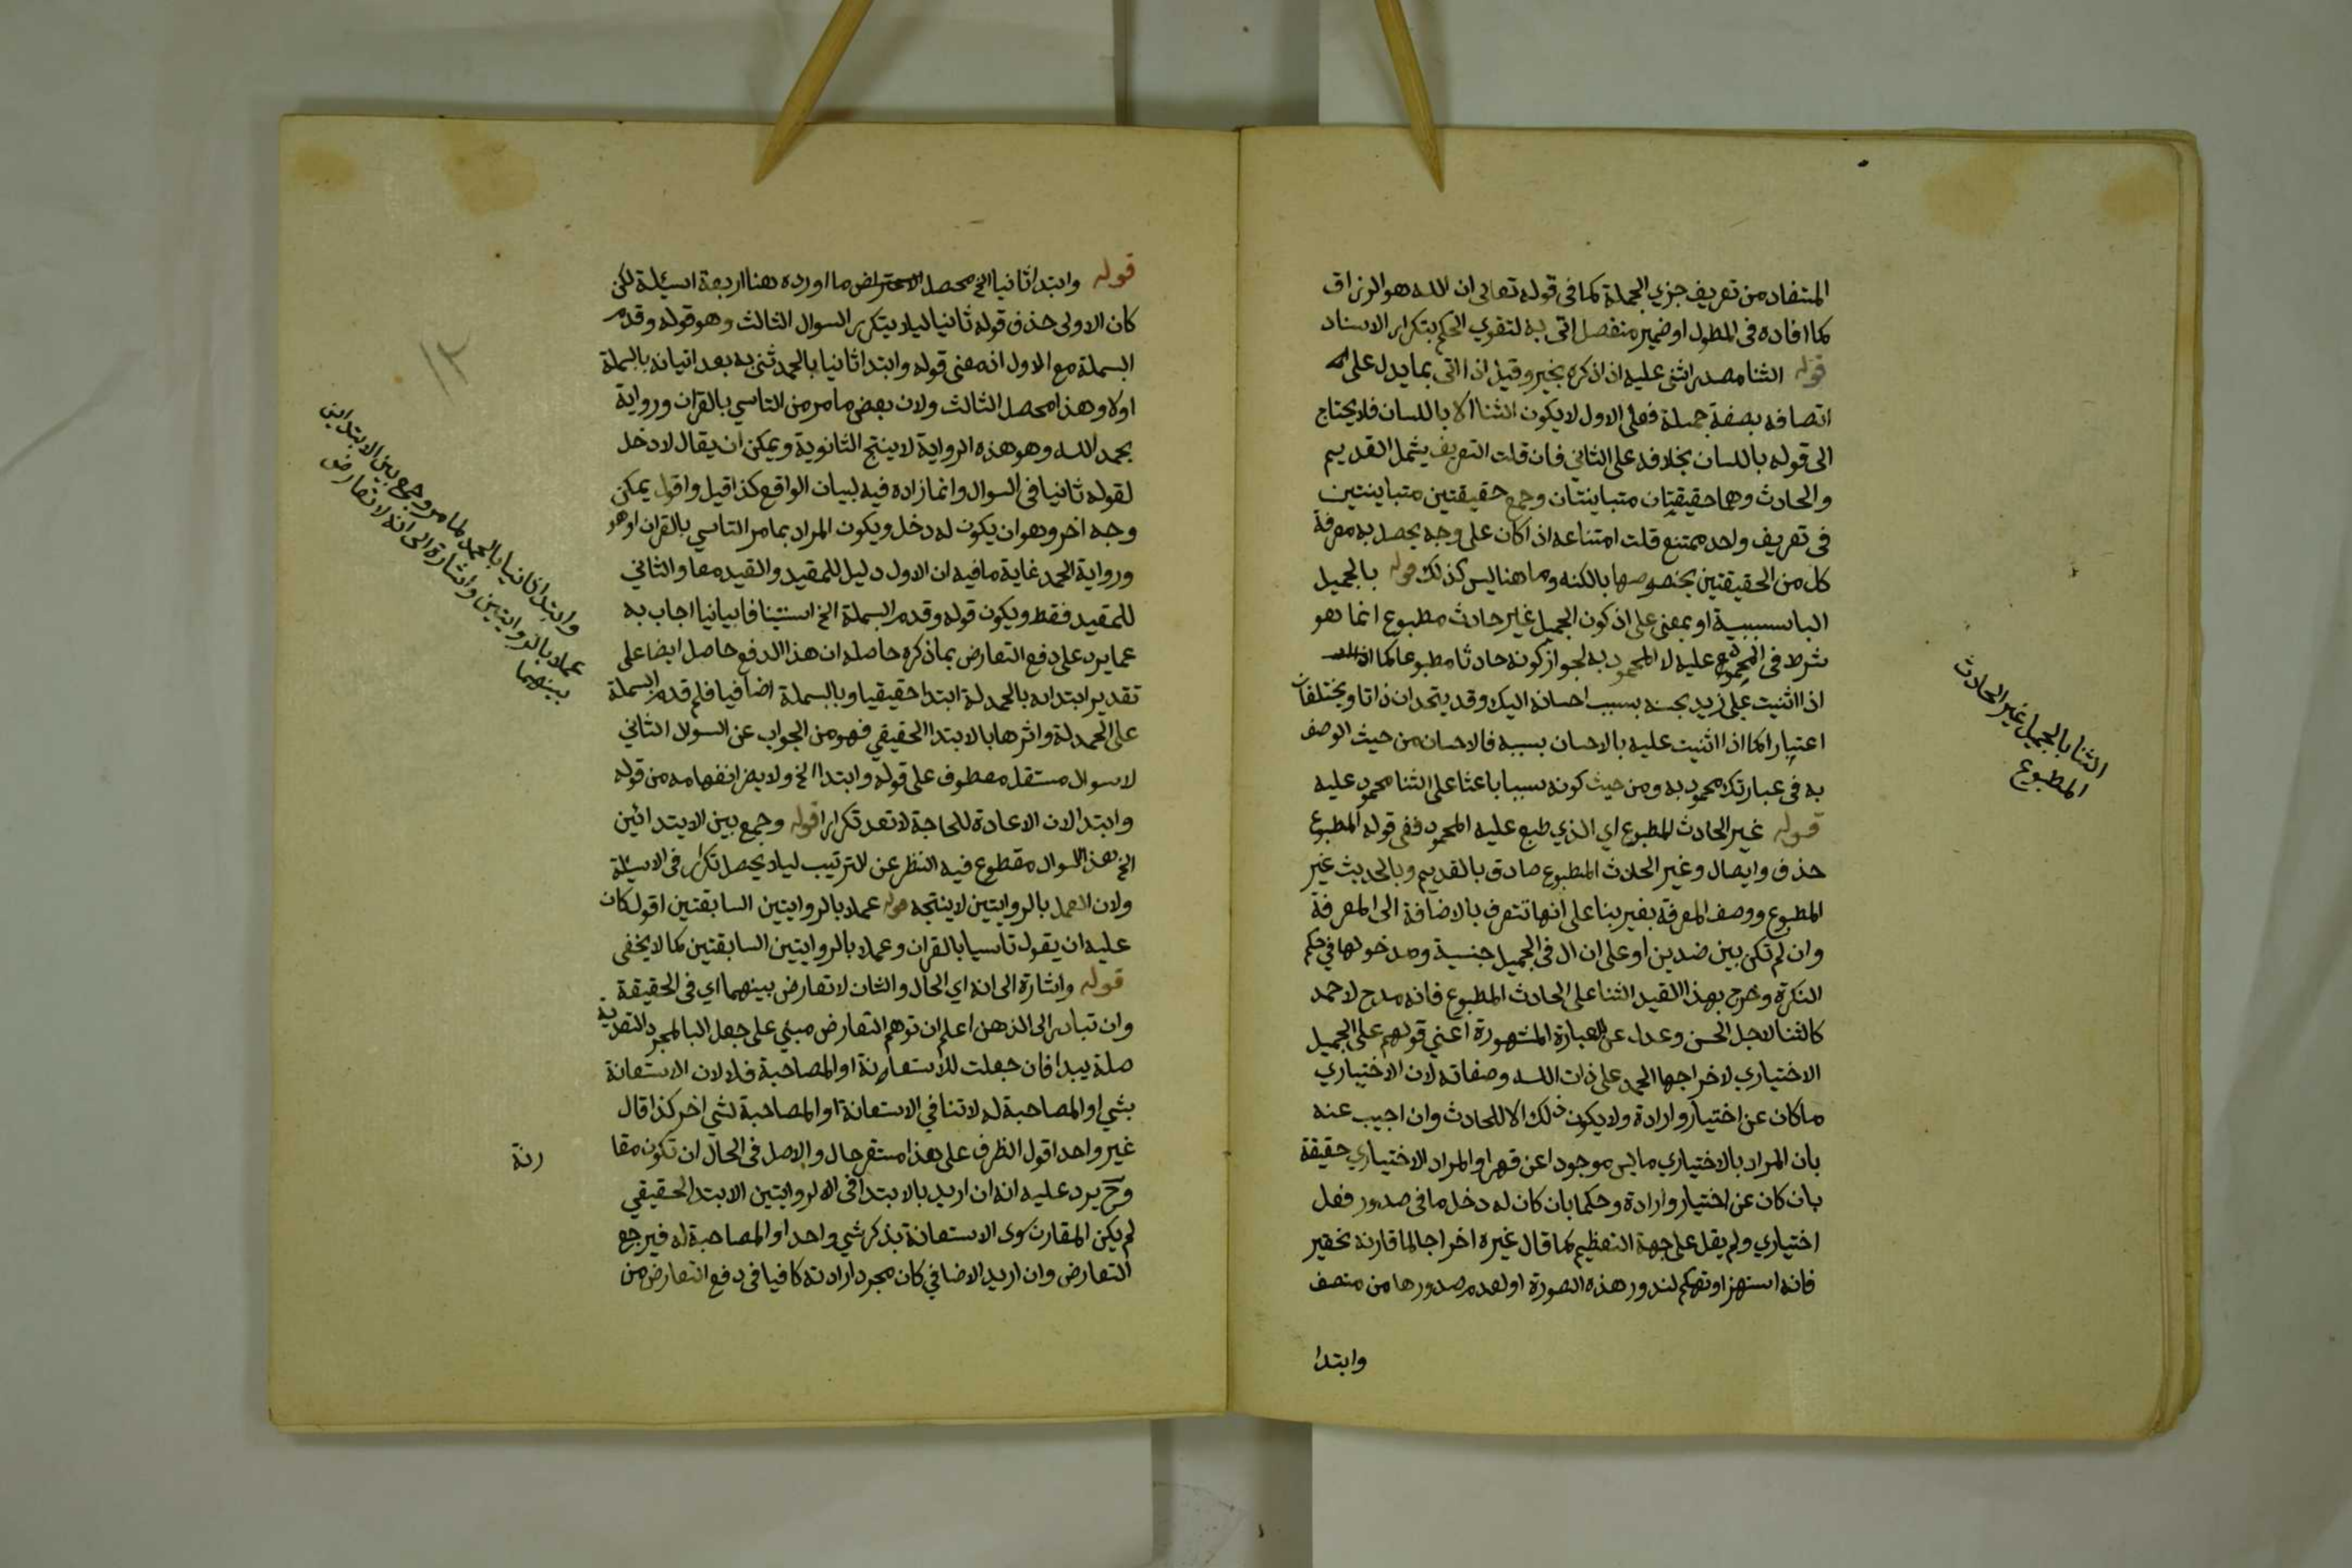 المتفاد من تعريف جزي الجملة كما في قوله تعالى ان الله هو الرزاق
كما افاده في المطول او ضمير منفصل اتى به لتقوي الحكم بتكرار الاسناد
قوله الثنا مصدر اثنى عليه اذا ذكره بخير وقيل اذا اتى بما يدل على
اتصافه بصفة جميلة فعلى الاول لا يكون الثنا الا باللسان فلا يحتاج
الى قوله باللسان بخلافه على الثاني فان قلت التعريف يشمل القديم
والحادث وهما حقيقتان متباينتان وجمع حقيقتين متباينتين
في تعريف واحد ممتنع قلت امتناعه اذا كان على وجه يحصل به معرفة
كل من الحقيقتين بخصوصها بالكنه وما هنا ليس كذلك قوله بالجميل
البا سببية او بمعنى على ان كون الجميل غير حادث مطبوع انما هو
شرط في المحمود عليه لا المحمود به لجواز كونه حادثا مطبوعا كما
اذا اثنيت على زيد بحسنه بسبب احسانه اليك وقد يتحدان ذاتا ويختلفان
اعتبارا كما اذا اثنيت عليه بالاحسان بسببه فالاحسان من حيث الوصف
به في عبارتك محمود به ومن حيث كونه سببا باعثا على الثنا محمود عليه
قوله غير الحادث المطبوع اي الذي طبع عليه المحمود ففي قوله المطبوع
حذف وايصال وغير الحادث المطبوع صادق بالقديم وبالحديث غير
المطبوع ووصف المعرفة بغير بنا على انها تتعرف بالاضافة الى المعرفة
وان لم تكن بين ضدين او على ان ال في الجميل جنسية ومدخولها في حكم
النكرة وخرج بهذا القيد الثنا على الحادث المطبوع فانه مدح لا حمد
كالثنا لاجل الحسن وعدل عن العبارة المشهورة اعني قولهم على الجميل
الاختياري لاخراجها الحمد على ذات الله وصفاته لان الاختياري
ما كان عن اختيار وارادة ولا يكون ذلك الا للحادث وان اجيب عنه
بان المراد بالاختياري ما ليس موجودا عن قهر او المراد الاختياري حقيقة
بان كان عن اختيار وارادة وحكما بان كان له دخل ما في صدور فعل
اختياري ولم يقل على جهة التعظيم كما قال غيره اخراجا لما قارنه تحقير
فانه استهزا وتهكم لندور هذه الصورة او لعدم صدورها من منصف
وابتدا
الثنا بالجميل غير الحادث
المطبوع
قوله وابتدا ثانيا الخ محصل الاعتراض ما اورده هنا اربعة اسئلة لكن
كان الاولى حذف قوله ثانيا ليلا يتكرر السوال الثالث وهو قوله وقدم
البسملة مع الاول اذ معنى قوله وابتدا ثانيا بالحمد ثنى به بعد اتيانه بالبسملة
اولا وهذا محصل الثالث ولان بعض ما مر من التاسي بالقران ورواية
بحمد الله وهو هذه الرواية لا ينتج الثانوية ويمكن ان يقال لا دخل
لقوله ثانيا في السوال وانما زاده فيه لبيان الواقع كذا قيل واقول يمكن
وجه اخر وهو ان يكون له دخل ويكون المراد بما مر التاسي بالقران او هو
ورواية الحمد غاية ما فيه ان الاول دليل للمقيد والقيد معا والثاني
للمقيد فقط ويكون قوله وقدم البسملة الخ استينافا بيانيا اجاب به
عما يرد على دفع التعارض بما ذكره حاصله ان هذا الدفع حاصل ايضا على
تقدير ابتدايه بالحمدلة ابتدا حقيقيا وبالبسملة اضافيا فلم قدم البسملة
على الحمدلة واثرها بالابتدا الحقيقي فهو من الجواب عن السوال الثاني
لا سوال مستقل معطوف على قوله وابتدا الخ ولا يضر انفهامه من قوله
وابتدا لان الاعادة للحاجة لا تعد تكرارا قوله وجمع بين الابتدائين
الخ هذا السوال مقطوع فيه النظر عن الترتيب ليلا يحصل تكرار في الاسئلة
ولان العمل بالروايتين لا ينتجه قوله عملا بالروايتين السابقتين اقول كان
عليه ان يقول تاسيا بالقران وعملا بالروايتين السابقتين كما لا يخفى
قوله واشارة الى انه اي الحال والشان لا تعارض بينهما اي في الحقيقة
وان تبادر الى الذهن اعلم ان توهم التعارض مبني على جعل البا لمجرد التعدية
صلة يبدا فان جعلت للاستعانة او المصاحبة فلا لان الاستعانة
بشي او المصاحبة له لا تنافي الاستعانة او المصاحبة لشي اخر كذا قال
غير واحد اقول الظرف على هذا مستقر حال والاصل في الحال ان تكون مقا
رنة
وح يرد عليه انه ان اريد بالابتدا في الروايتين الابتدا الحقيقي
لم يكن المقارن سوى الاستعانة بذكر شي واحد او المصاحبة له فيرجع
التعارض وان اريد الاضافي كان مجرد ارادته كافيا في دفع التعارض من
١٢
وابتدا ثانيا بالحمد لما مر وجمع بين الابتداين
عملا بالروايتين واشارة الى انه لا تعارض
بينهما